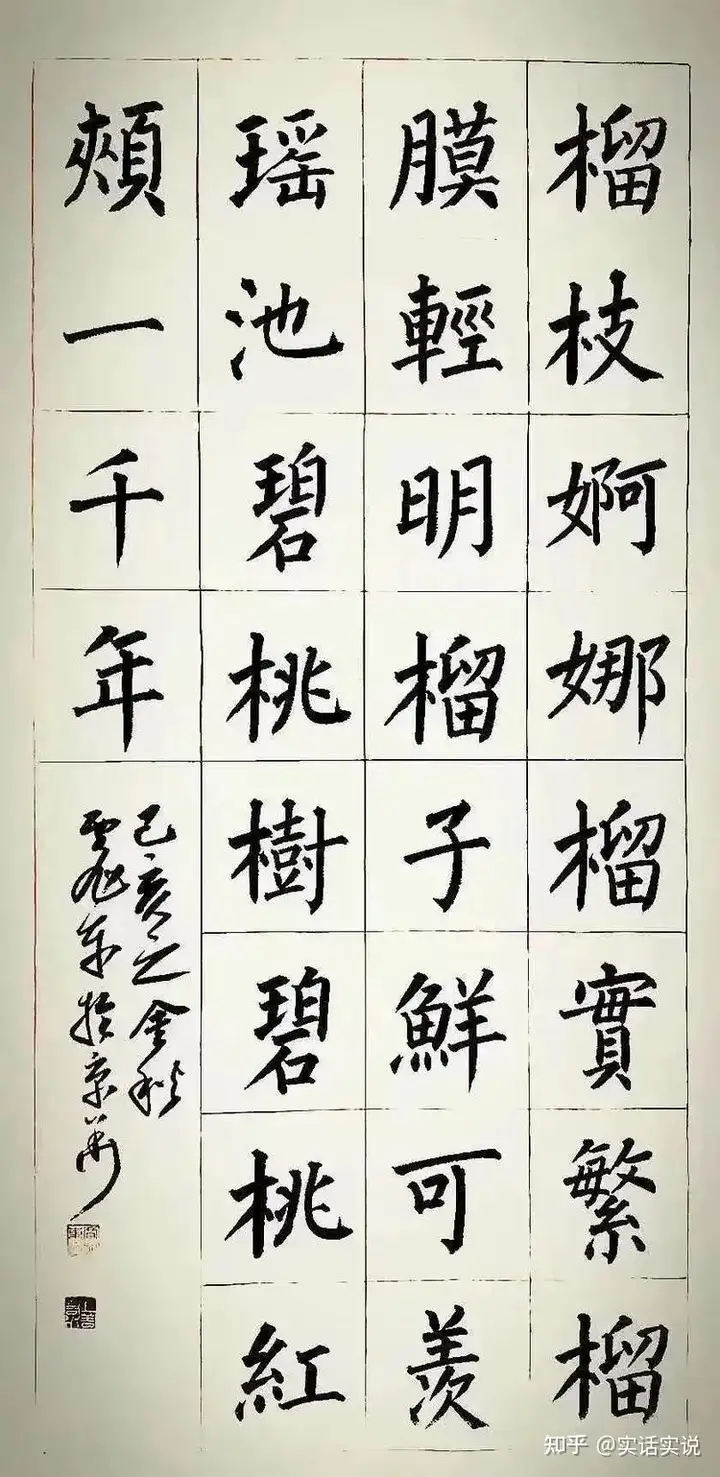 榴枝婀娜榴實繁榴
膜輕明榴子鮮可羨
瑶池碧桃樹碧桃紅
頰一千年
己亥之金秋
于京華
知乎 @实话实说